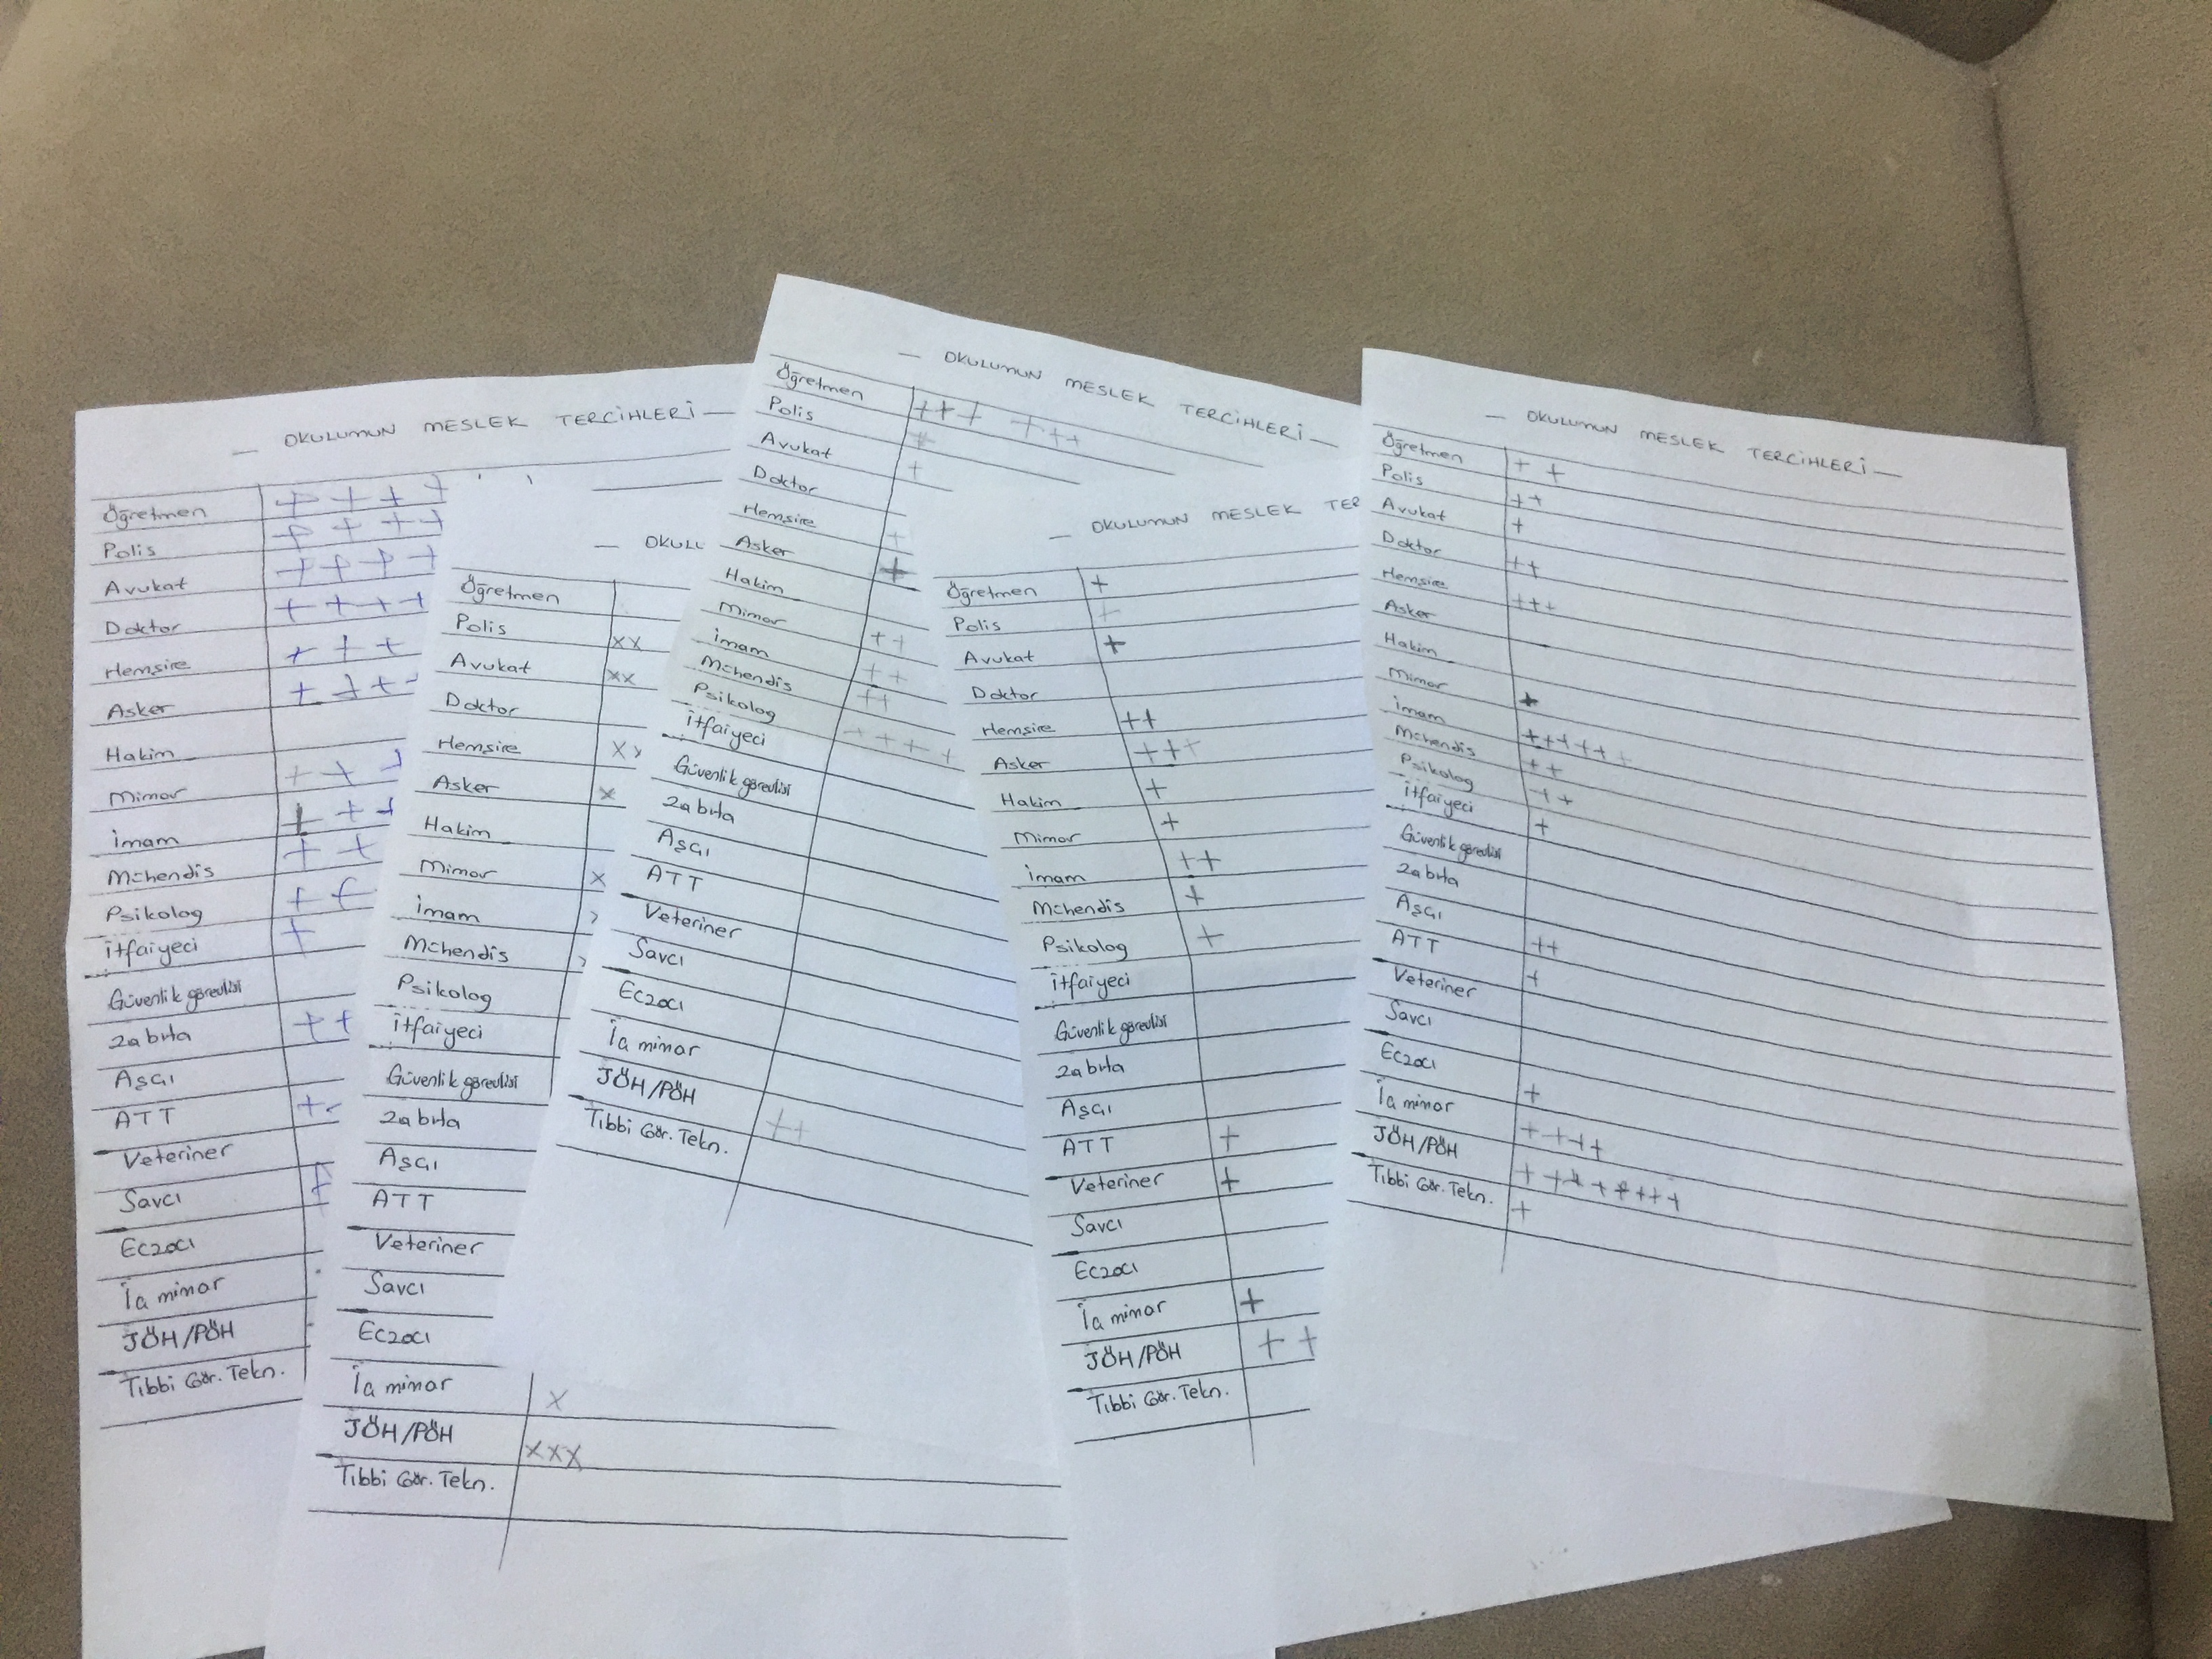 — OKULUMUN MESLEK TERCİHLERİ —
Öğretmen ++++
Polis ++++
Avukat ++++
Doktor ++++
Hemşire +++
Asker +++
Hakim
Mimar +++
İmam +++
Mühendis ++
Psikolog ++
İtfaiyeci +
Güvenlik görevlisi
Zabıta ++
Aşçı
ATT +
Veteriner
Savcı +
Eczacı
İç mimar
JÖH/PÖH
Tıbbi Gör. Tekn.
— OKUL
Öğretmen
Polis xx
Avukat xx
Doktor
Hemşire x
Asker x
Hakim
Mimar x
İmam
Mühendis
Psikolog
İtfaiyeci
Güvenlik görevlisi
Zabıta
Aşçı
ATT
Veteriner
Savcı
Eczacı
İç mimar x
JÖH/PÖH xxx
Tıbbi Gör. Tekn.
— OKULUMUN MESLEK TERCİHLERİ —
Öğretmen +++ +++
Polis +
Avukat +
Doktor
Hemşire +
Asker +
Hakim
Mimar ++
İmam ++
Mühendis ++
Psikolog ++++
İtfaiyeci
Güvenlik görevlisi
Zabıta
Aşçı
ATT
Veteriner
Savcı
Eczacı
İç mimar
JÖH/PÖH ++
Tıbbi Gör. Tekn.
— OKULUMUN MESLEK TER
Öğretmen +
Polis +
Avukat +
Doktor
Hemşire ++
Asker +++
Hakim +
Mimar +
İmam ++
Mühendis +
Psikolog +
İtfaiyeci
Güvenlik görevlisi
Zabıta
Aşçı
ATT +
Veteriner +
Savcı
Eczacı
İç mimar +
JÖH/PÖH ++
Tıbbi Gör. Tekn.
— OKULUMUN MESLEK TERCİHLERİ —
Öğretmen ++
Polis ++
Avukat +
Doktor ++
Hemşire +++
Asker
Hakim
Mimar +
İmam ++++++
Mühendis ++
Psikolog ++
İtfaiyeci +
Güvenlik görevlisi
Zabıta
Aşçı
ATT ++
Veteriner +
Savcı
Eczacı
İç mimar +
JÖH/PÖH ++++
Tıbbi Gör. Tekn. ++++++++
+